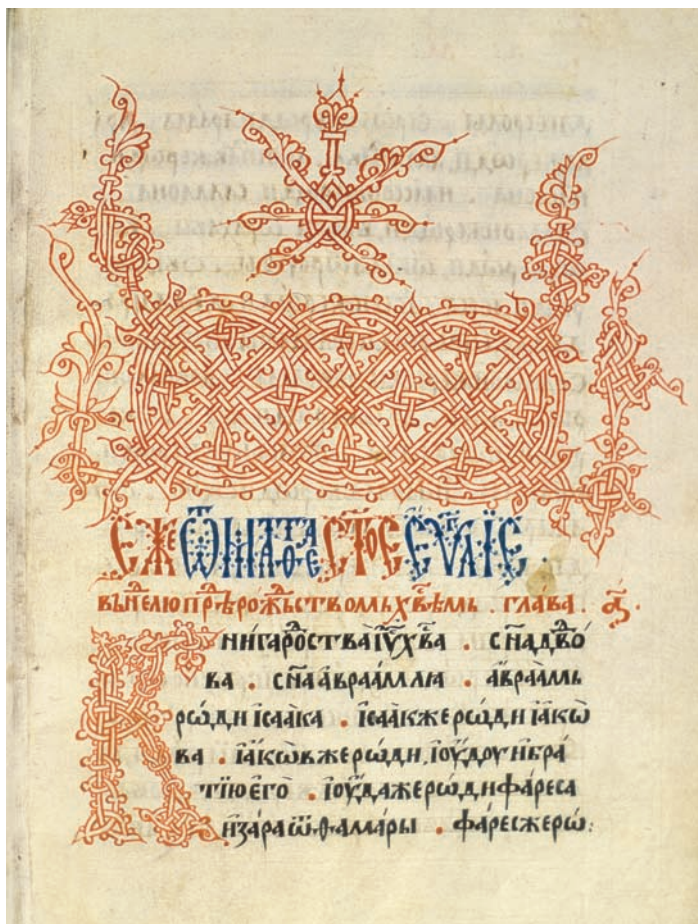 Е҆же ѿ маⷮѳеа ст҃ое єѵⷢ҇лїе .
въ неⷣлю прѣⷣ рожьствомь хв҃ѣмь . глава . а҃ .
Книга роⷤства і҆ѵ҃ х҃ва . сн҃а дв҃ѡ
ва . сн҃а а҆враа́млѧ . а҆враа́мь
рѡ́ди і҆саа́ка . і҆саа́к же рѡ́ди і҆а́кѡ
ва . і҆а́кѡв же рѡ́ди , і҆ꙋ́дꙋ и҆ бра́
тїю є҆го̀ . і҆ꙋ́да же рѡ́ди фа́реса
и҆ за́ра ѿ ѳама́ры . фа́рес же рѡ́: